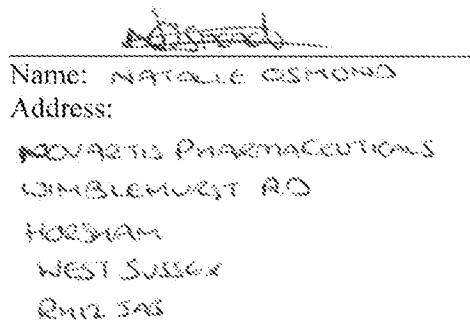 Name: NATALIE OSMOND
Address:
NOVARTIS PHARMACEUTICALS
WIMBLEHURST RD
HORSHAM
WEST SUSSEX
RH12 5AB